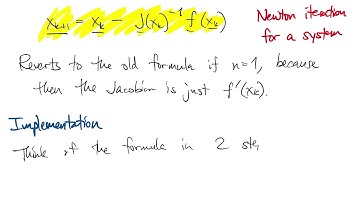 x_{k+1} = x_k - J(x_k)^{-1} f(x_k)
Newton iteration
for a system
Reverts to the old formula if n=1, because
then the Jacobian is just f'(x_k).
Implementation
Think of the formula in 2 ste